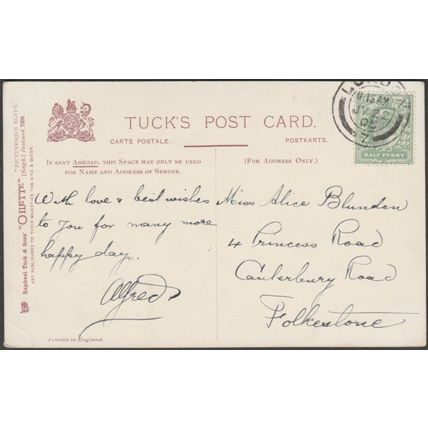 TUCK'S POST CARD.
CARTE POSTALE.
POSTKARTE.
IF SENT ABROAD, THIS SPACE MAY ONLY BE USED
FOR NAME AND ADDRESS OF SENDER.
(FOR ADDRESS ONLY.)
With love & best wishes
to you for many more
happy day.
Alfred
Miss Alice Blunden
4 Princess Road
Canterbury Road
Folkestone
Printed in England.
"PICTURESQUE EGYPT."
Raphael Tuck & Sons' "OILETTE" [Regd.] Postcard
ART PUBLISHERS TO THEIR MAJESTIES THE KING & QUEEN.
HALF PENNY